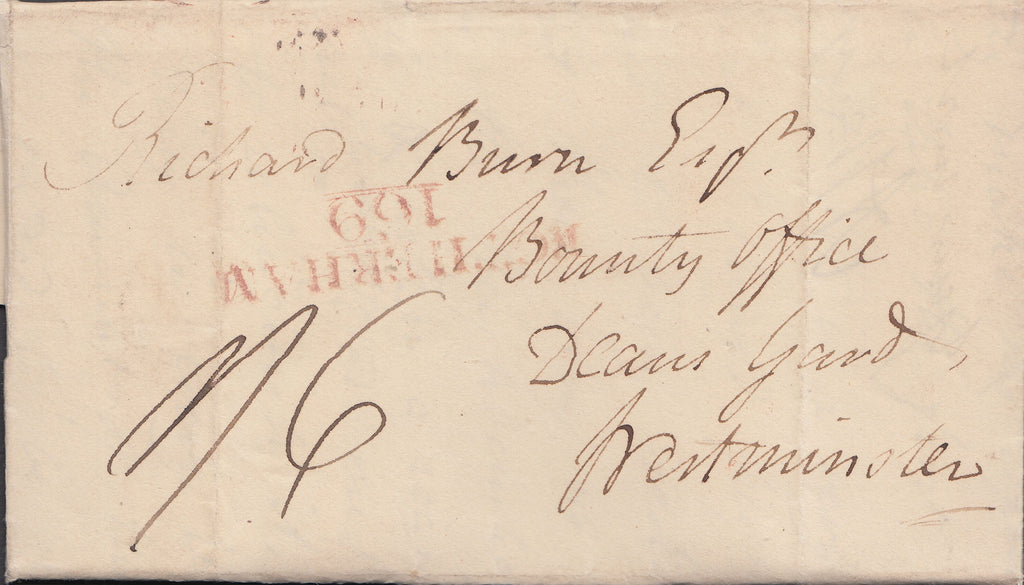 Richard Burn Esqr.
ROTHERHAM
169
Bounty Office
Deans Yard,
Westminster
1/6